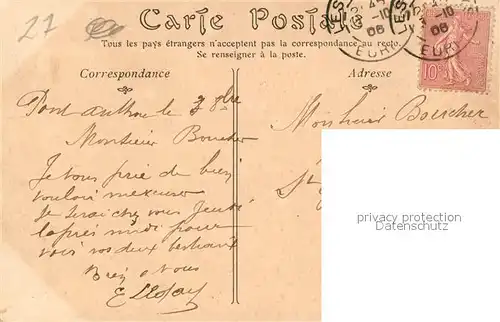 27
Carte Postale
Tous les pays étrangers n'acceptent pas la correspondance au recto.
Se renseigner à la poste.
Correspondance
Adresse
LES
3-10
08
EURE
10
Pont authou le 3 8bre
Monsieur Boucher
Je vous prie de bien
vouloir m'excuser
Je serai chez vous Jeudi
l'après midi pour
voir vos deux
Bien a vous
Monsieur Boucher
privacy protection
Wasserzeichen nur auf Bildern im Internet